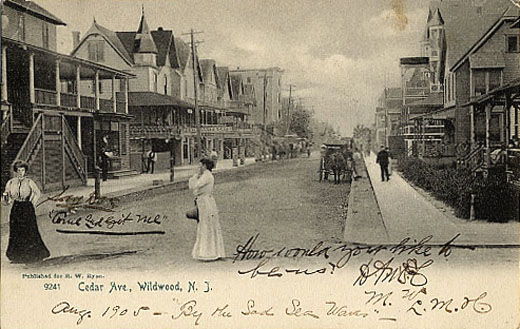 "Come and Get Me"
How would you like to
be us?
Published for H. W. Ryno.
9241 Cedar Ave., Wildwood, N. J.
Aug. 1905 - "By the Sad Sea Waves" -